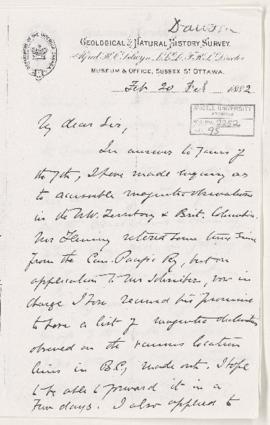 Dawson
GEOLOGICAL & NATURAL HISTORY SURVEY.
Alfred R. C. Selwyn, LL.D. F.R.S. Director
MUSEUM & OFFICE, SUSSEX ST OTTAWA.
Feb. 20 Feb 1882
McGILL UNIVERSITY
2252
95
My dear Sir,
In answer to yours of
the 7th, I have made inquiry as
to accessible magnetic observations
in the N.W. Territory & Brit. Columbia.
Mr Fleming retired some time since
from the Can. Pacific Ry, but on
application to Mr Schreiber, now in
charge I have received his promise
to have a list of magnetic
observed on the various location
lines in B.C. made out. I hope
to be able to forward it in a
few days. I also applied to